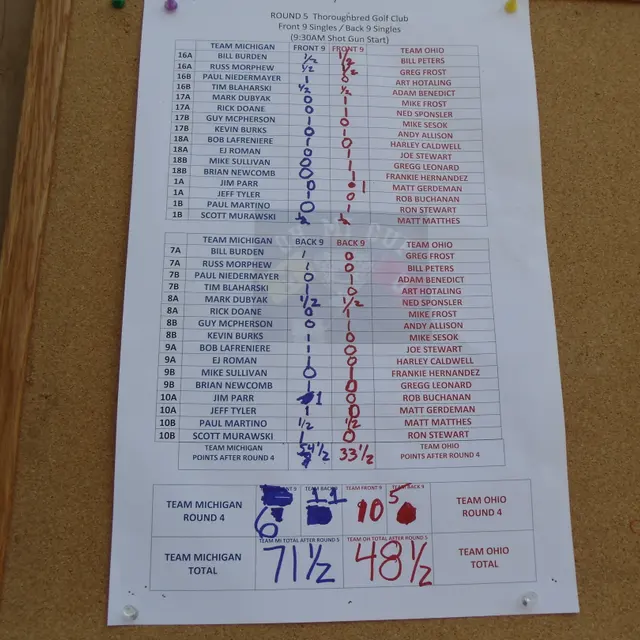 ROUND 5 Thoroughbred Golf Club
Front 9 Singles / Back 9 Singles
(9:30AM Shot Gun Start)
TEAM MICHIGAN FRONT 9 FRONT 9 TEAM OHIO
16A BILL BURDEN 1/2 1/2 BILL PETERS
16A RUSS MORPHEW 1/2 1/2 GREG FROST
16B PAUL NIEDERMAYER 1 0 ART HOTALING
16B TIM BLAHARSKI 1/2 1/2 ADAM BENEDICT
17A MARK DUBYAK 0 1 MIKE FROST
17A RICK DOANE 0 1 NED SPONSLER
17B GUY MCPHERSON 1 0 MIKE SESOK
17B KEVIN BURKS 0 1 ANDY ALLISON
18A BOB LAFRENIERE 1 0 HARLEY CALDWELL
18A EJ ROMAN 0 1 JOE STEWART
18B MIKE SULLIVAN 0 1 GREGG LEONARD
18B BRIAN NEWCOMB 0 1 FRANKIE HERNANDEZ
1A JIM PARR 0 1 MATT GERDEMAN
1A JEFF TYLER 1 0 ROB BUCHANAN
1B PAUL MARTINO 0 1 RON STEWART
1B SCOTT MURAWSKI 1/2 1/2 MATT MATTHES
TEAM MICHIGAN BACK 9 BACK 9 TEAM OHIO
7A BILL BURDEN 1 0 GREG FROST
7A RUSS MORPHEW 1 0 BILL PETERS
7B PAUL NIEDERMAYER 0 1 ADAM BENEDICT
7B TIM BLAHARSKI 1 0 ART HOTALING
8A MARK DUBYAK 1/2 1/2 NED SPONSLER
8A RICK DOANE 0 1 MIKE FROST
8B GUY MCPHERSON 0 1 ANDY ALLISON
8B KEVIN BURKS 1 0 MIKE SESOK
9A BOB LAFRENIERE 1 0 JOE STEWART
9A EJ ROMAN 1 0 HARLEY CALDWELL
9B MIKE SULLIVAN 0 1 FRANKIE HERNANDEZ
9B BRIAN NEWCOMB 1 0 GREGG LEONARD
10A JIM PARR 1 0 ROB BUCHANAN
10A JEFF TYLER 1 0 MATT GERDEMAN
10B PAUL MARTINO 1/2 1/2 MATT MATTHES
10B SCOTT MURAWSKI 1 0 RON STEWART
TEAM MICHIGAN 54 1/2 33 1/2 TEAM OHIO
POINTS AFTER ROUND 4 POINTS AFTER ROUND 4
TEAM BACK 9 TEAM FRONT 9 TEAM BACK 9
TEAM MICHIGAN 6 11 10 5 TEAM OHIO
ROUND 4 ROUND 4
TEAM MI TOTAL AFTER ROUND 5 TEAM OH TOTAL AFTER ROUND 5
TEAM MICHIGAN 71 1/2 48 1/2 TEAM OHIO
TOTAL TOTAL